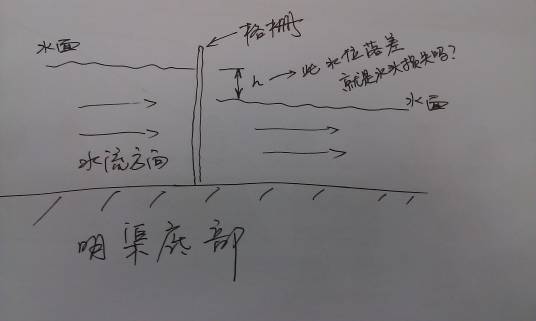 格栅
水面
h → 此水位落差
就是水头损失吗?
水面
水流方向
明渠底部